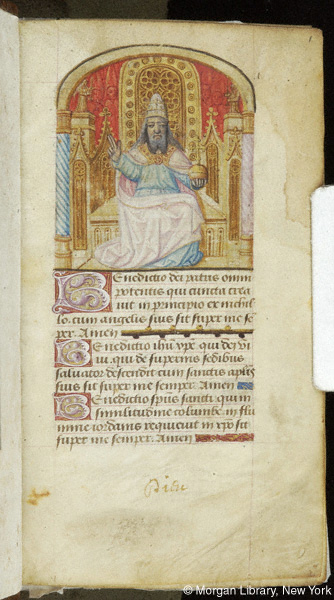 Benedictio dei patris omni
potentis qui cuncta crea
uit in principio ex nichil
lo. cum angelis suis sit super me se
per. Amen
Benedictio ihu xpi qui dei vi
ui. qui de supernis sedibus
saluator descendit cum sanctis aplis
suis sit super me semper. Amen
Benedictio spus sancti qui in
similitudine columbe. in flu
mine iordanis requieuit in xpo sit
super me semper. Amen
Dieu
© Morgan Library, New York